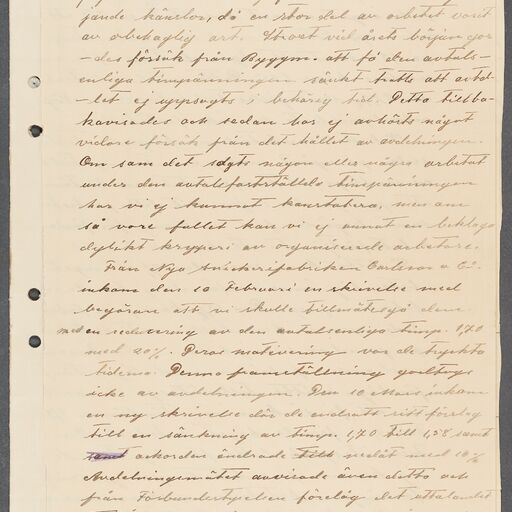 jande känslor, då en stor del av arbetet varit
av obehaglig art. Strax vid årets början gor-
-des försök från Byggm. att få den avtals-
enliga timpänningen sänkt trotts att avta-
-let ej uppsagts i behörig tid. Detta tillba-
kavisades och sedan har ej avhörts något
vidare försök från det hållet av avdelningen.
Om som det sagts någon eller några arbetat
under den avtalsfastställda timpänningen
har vi ej kunnat konstatera, men om
så vore fallet kan vi ej annat än beklaga
dylikt kryperi av organiserade arbetare.
Från Nya Snickerifabriken Carlsson & Co.
inkom den 10 Februari en skrivelse med
begäran att vi skulle tillmötesgå dem
med en reducering av den avtalsenliga timp. 1,70
med 20%. Deras motivering var de tryckta
tiderna. Denna framställning godtogs
icke av avdelningen. Den 10 Mars inkom
en ny skrivelse där de ändrat sitt förslag
till en sänkning av timp. 1,70 till 1,58 samt
samt ackorden ändrade till nedåt med 10%
Avdelningsmötet avvisade även detta och
från Förbundsstyrelsen förelåg det uttalandet